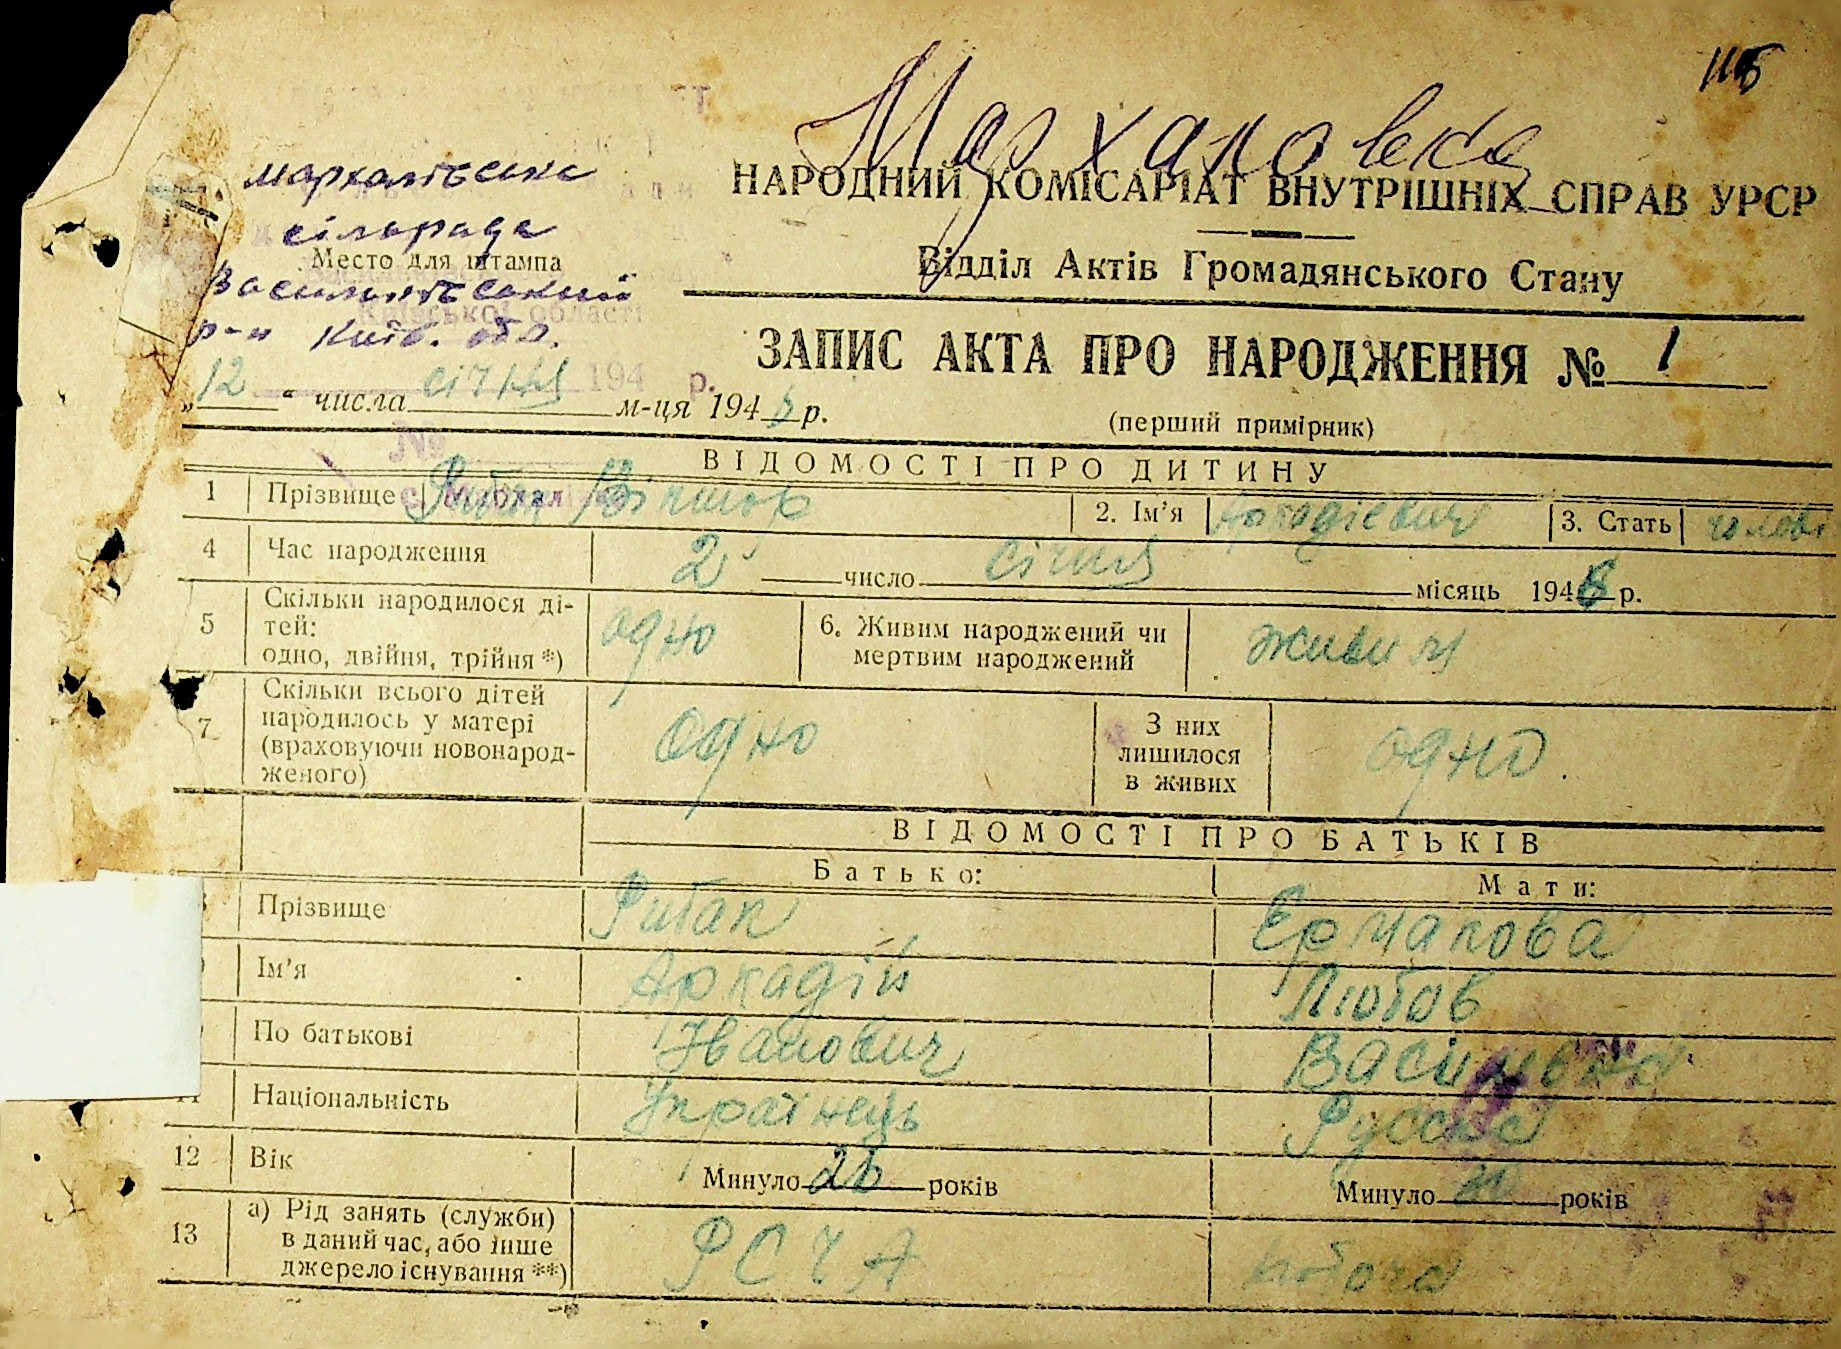 116
Мархановка
НАРОДНИЙ КОМІСАРІАТ ВНУТРІШНІХ СПРАВ УРСР
Відділ Актів Громадянського Стану
Мархалівська
сільрада
Место для штампа
Васильківський
р-н Київ. обл.
ЗАПИС АКТА ПРО НАРОДЖЕННЯ № 1
(перший примірник)
„12“ числа січня м-ця 194 р.
ВІДОМОСТІ ПРО ДИТИНУ
1 Прізвище Рибак Віктор 2. Ім’я Аркадієвич 3. Стать чолові
4 Час народження 2 число січня місяць 1946 р.
5 Скільки народилося ді-
тей:
одно, двійня, трійня *) одно 6. Живим народжений чи
мертвим народжений живим
7 Скільки всього дітей
народилось у матері
(враховуючи новонарод-
женого) одно З них
лишилося
в живих одно.
ВІДОМОСТІ ПРО БАТЬКІВ
Батько: Мати:
Прізвище Рибак Ермакова
Ім’я Аркадій Любов
По батькові Іванович
Національність Українець Русска
12 Вік Минуло років Минуло років
13 а) Рід занять (служби)
в даний час, або інше
джерело існування **) РСЧА